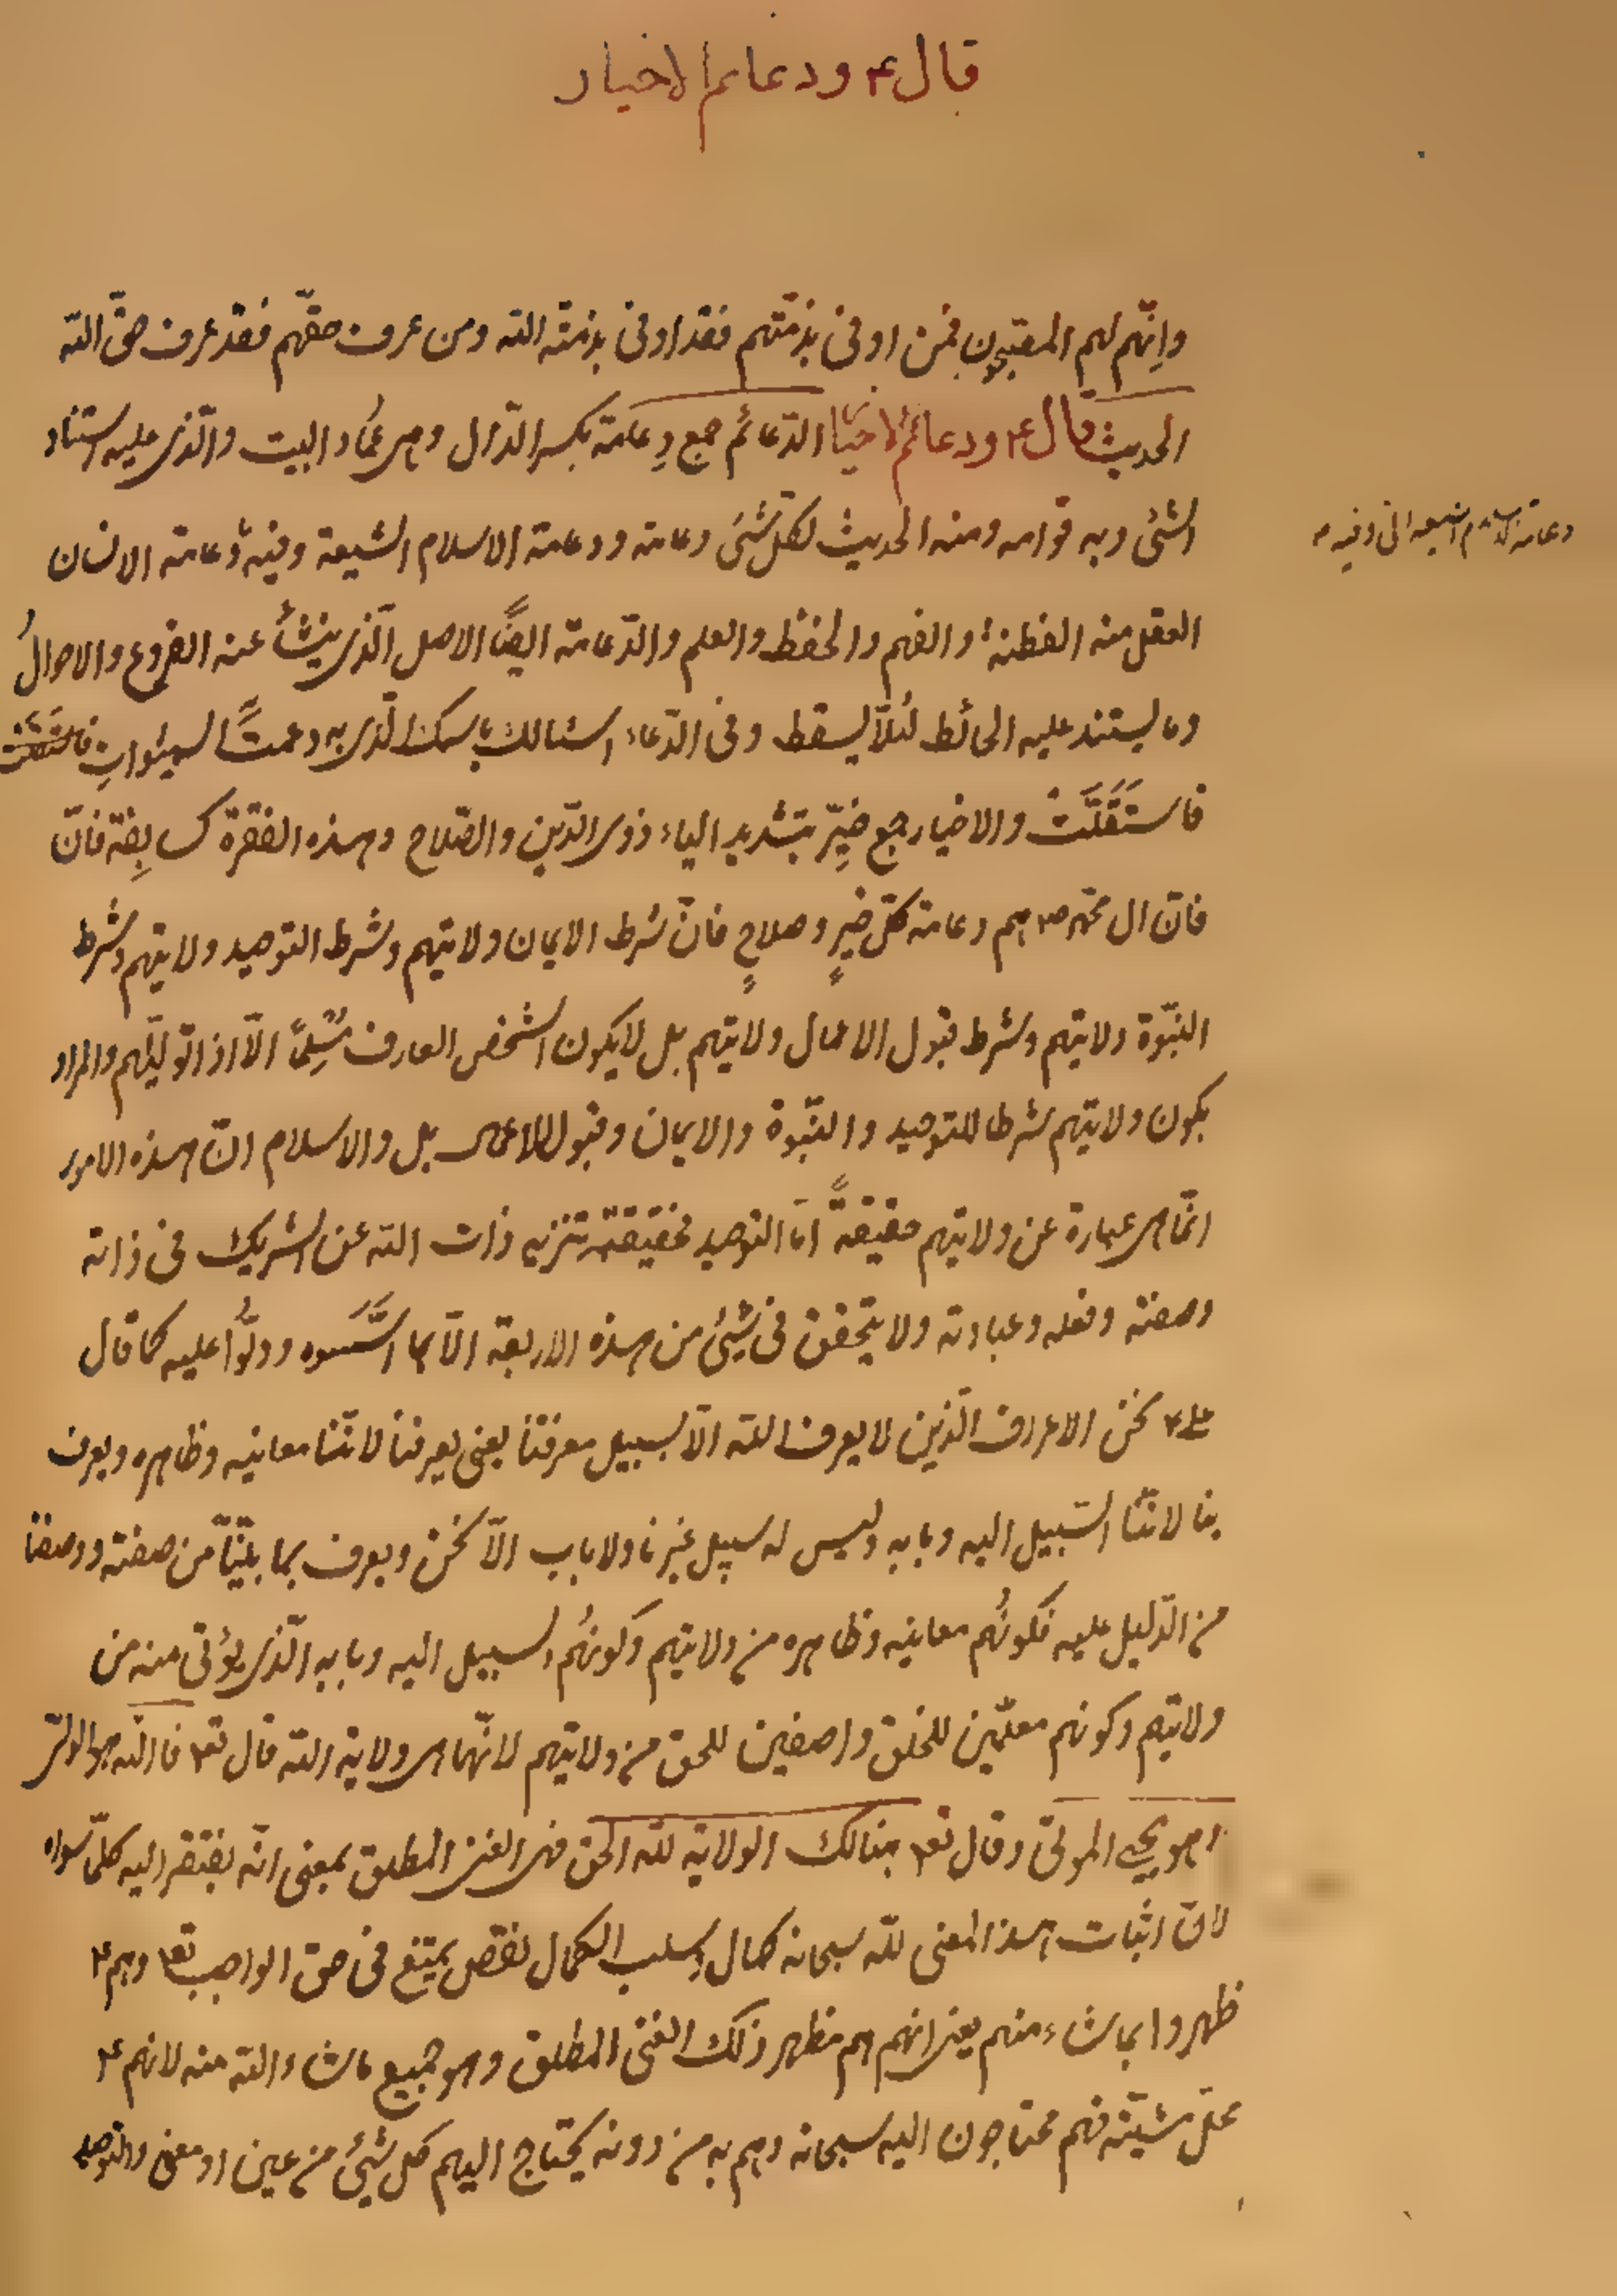 قال ع ودعائم الاخيار
وانّهم لهم المقبّحون فمن اوفى بذمّتهم فقد اوفى بذمّة الله ومن عرف حقّهم فقد عرف حقّ الله
الحديث قال ع ودعائم الاخيار الدّعائم جمع دِعامة بكسر الدّال وهى عُماد البيت والّذى عليه استناد
الشئ وبه قوامه ومنه الحديث لكلّ شئ دعامة ودعامة الاسلام الشيعة وفيه دُعامة الانسان
دعامة الاسلام الشيعه اى وفيه
العقل منه الفطنة والفهم والحفظ والعلم والدّعامة ايضًا الاصل الّذى ينشأ عنه الفروع والاحوالُ
وما يستند عليه الحائط لئلّا يسقط وفى الدّعاء اسئالك باسمك الّذى به دعمتَ السموات
فاستَقَلَّتْ والاخيار جمع خيِّر بتشديد الياء ذوى الدّين والصّلاح وهذه الفقرة كسابِقة فانّ
فانّ ال محمّد ص هم دعامة كلّ خيرٍ وصلاحٍ فانّ شرط الايمان ولايتهم وشرط التوحيد ولايتهم وشرط
النبّوة ولايتهم وشرط قبول الاعمال ولايتهم بل لا يكون الشخص العارف مُسْلِمًا الّا اذا تولّيهم والمراد
بكون ولايتهم شرطا للتوحيد والنبّوة والايمان وقبول الاعمال بل والاسلام انّ هذه الامور
انّما هى عبارة عن ولايتهم حقيقةً امّا التوحيد فحقيقته تنزيه ذات الله عن الشريك فى ذاته
وصفته وفعله وعبادته ولا يتحقق فى شئ من هذه الاربعة الّا بما اسَّسَوه ودلّوُا عليه كما قال
على ع نحن الاعراف الّذين لا يعرف الله الّا بسبيل معرفتنا يعنى يعرفنا لانّنا معانيه وظاهره ويعرف
بنا لانّنا السّبيل اليه وبابه وليس له سبيل غيرنا ولا باب الّا نحن ويعرف بما بيّنّا من صفته ووصفنا
من الدّليل عليه فكونُهم معانيه وظاهره من ولايتهم وكونهُم السبيل اليه وبابه الّذى يؤتى منه من
ولايتهم وكونهم معلّمين للخلق واصفين للحق من ولايتهم لانّها هى ولاية الله قال تع فالله هو الولىّ
وهو يحيى الموتى وقال تع هنالك الولاية للّه الحق فهى الغنى المطلق بمعنى انّه يفتقر اليه كلّما سواه
لانّ اثبات هذا المعنى للّه سبحانه كمال وسلب الكمال نقص يمتنع فى حق الواجب تع وهم ع
ظهروا بما شاء منهم يعنى انهم هم مظهر ذلك الغنى المطلق وهو جميع ما شاء الله منه لانهم ع
محلّ مشيّته فهم محتاجون اليه سبحانه وهم به من دونه يحتاج اليهم كل شئ من عين او معنى والتوحيد